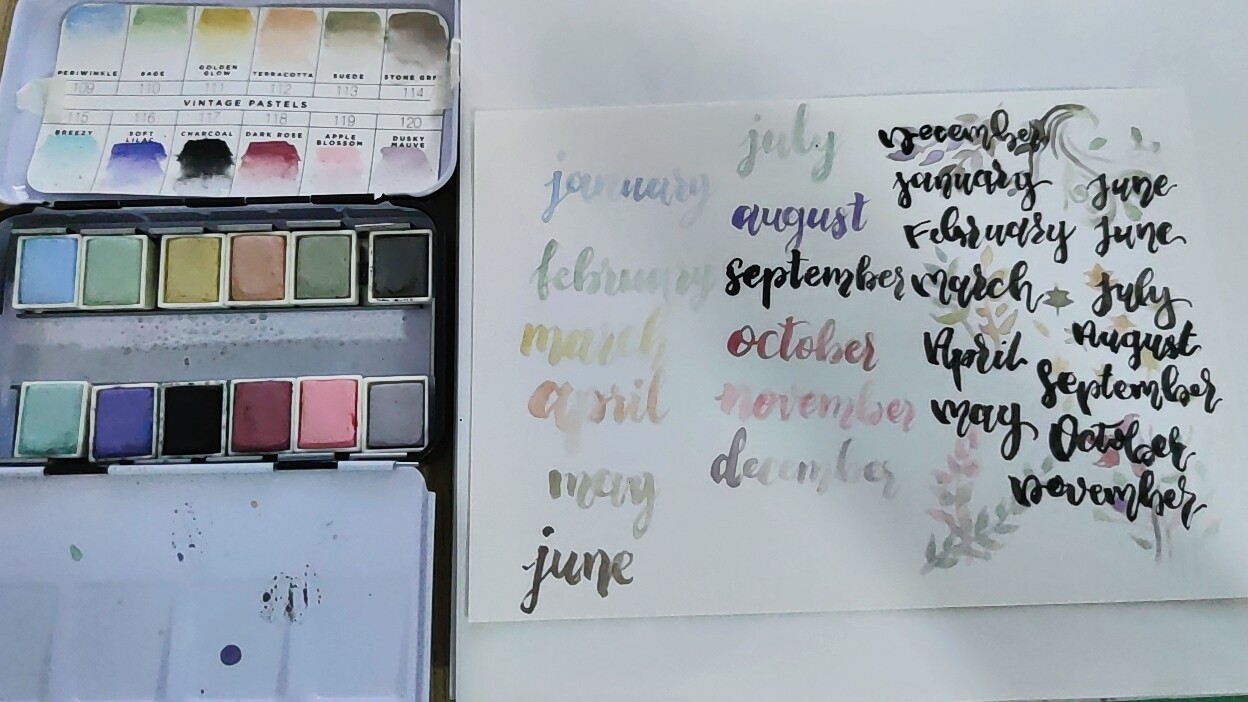 PERIWINKLE SAGE GOLDEN GLOW TERRACOTTA SUEDE STONE GRE
109 110 111 112 113 114
VINTAGE PASTELS
115 116 117 118 119 120
BREEZY SOFT LILAC CHARCOAL DARK ROSE APPLE BLOSSOM DUSKY MAUVE
january
february
march
april
may
june
july
august
september
october
november
december
December
January
February
March
April
May
June
June
July
August
September
October
November